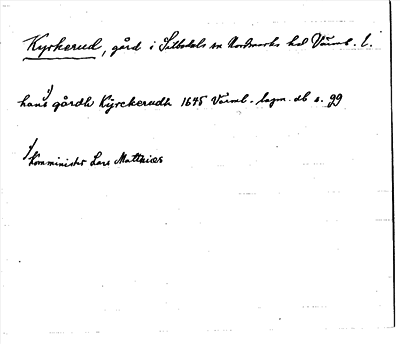 Kyrkerud, gård i Silbodals sn Nordmarks hd Värml. l.
hans 1) gårdh Kyrckerudh 1645 Värml. lagm. db s. 99
1) Komminister Lars Matthiæ